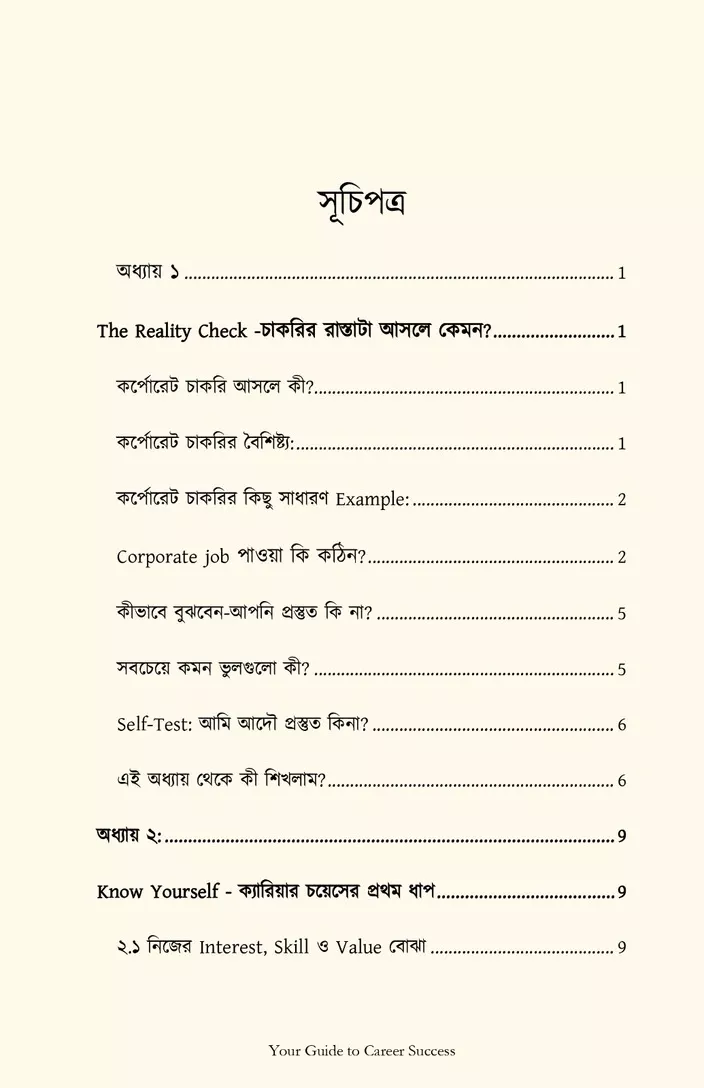 সূচিপত্র
অধ্যায় ১ ................................................................................................ 1
The Reality Check -চাকরির রাস্তাটা আসলে কেমন?........................... 1
কর্পোরেট চাকরি আসলে কী?................................................................... 1
কর্পোরেট চাকরির বৈশিষ্ট্য:....................................................................... 1
কর্পোরেট চাকরির কিছু সাধারণ Example: ............................................. 2
Corporate job পাওয়া কি কঠিন?....................................................... 2
কীভাবে বুঝবেন-আপনি প্রস্তুত কি না? ..................................................... 5
সবচেয়ে কমন ভুলগুলো কী? ................................................................... 5
Self-Test: আমি আদৌ প্রস্তুত কিনা? ...................................................... 6
এই অধ্যায় থেকে কী শিখলাম?................................................................ 6
অধ্যায় ২: ..................................................................................................... 9
Know Yourself - ক্যারিয়ার চয়েসের প্রথম ধাপ........................................ 9
২.১ নিজের Interest, Skill ও Value বোঝা ......................................... 9
Your Guide to Career Success